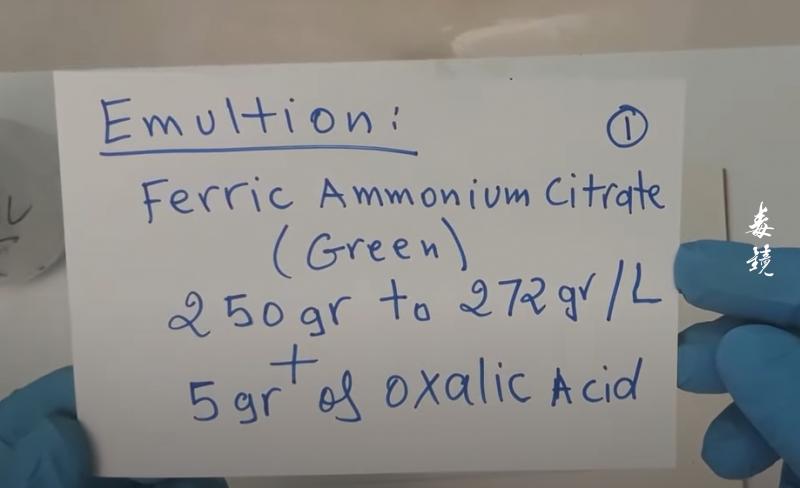 Emultion: ①
Ferric Ammonium Citrate
(Green)
250gr to 272gr/L
+
5gr of oxalic Acid
毒
镜